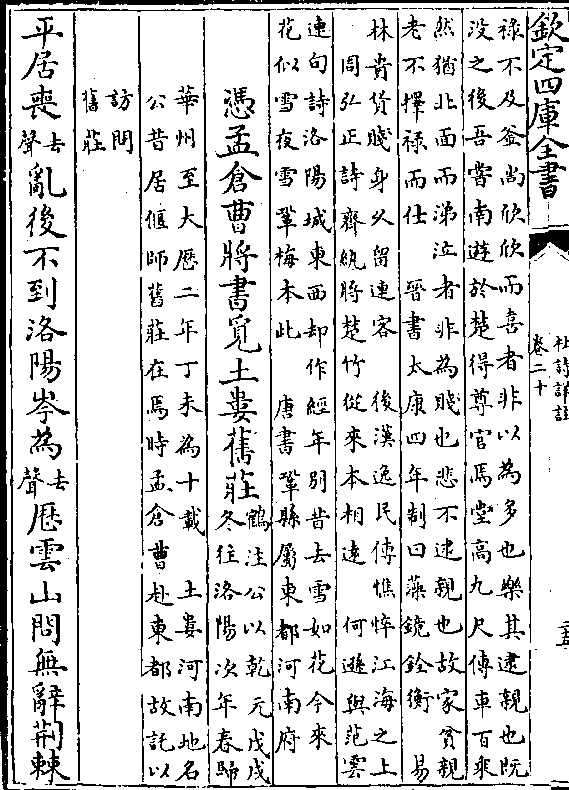 欽定四庫全書
杜詩詳註
卷二十
祿不及釜尚欣欣而喜者非以為多也樂其逮親也既
没之後吾嘗南遊於楚得尊官焉堂高九尺傳車百乘
然猶北面而涕泣者非為賤也悲不逮親也故家貧親
老不擇祿而仕 晉書太康四年制曰藻鏡銓衡 易
林貴貨賤身久留連客 後漢逸民傳憔悴江海之上
周弘正詩齊紈將楚竹從來本相逺 何遜與范雲
連句詩洛陽城東面却作經年别昔去雪如花今來
花似雪夜雪鞏梅本此 唐書鞏縣屬東都河南府
憑孟倉曹將書覓土婁舊莊
鶴注公以乾元戊戌
冬往洛陽次年春歸
華州至大厯二年丁未為十載 土婁河南地名
公昔居偃師舊莊在焉時孟倉曹赴東都故託以
訪問
舊莊
平居喪去聲亂後不到洛陽岑為去聲厯雲山問無辭荆棘